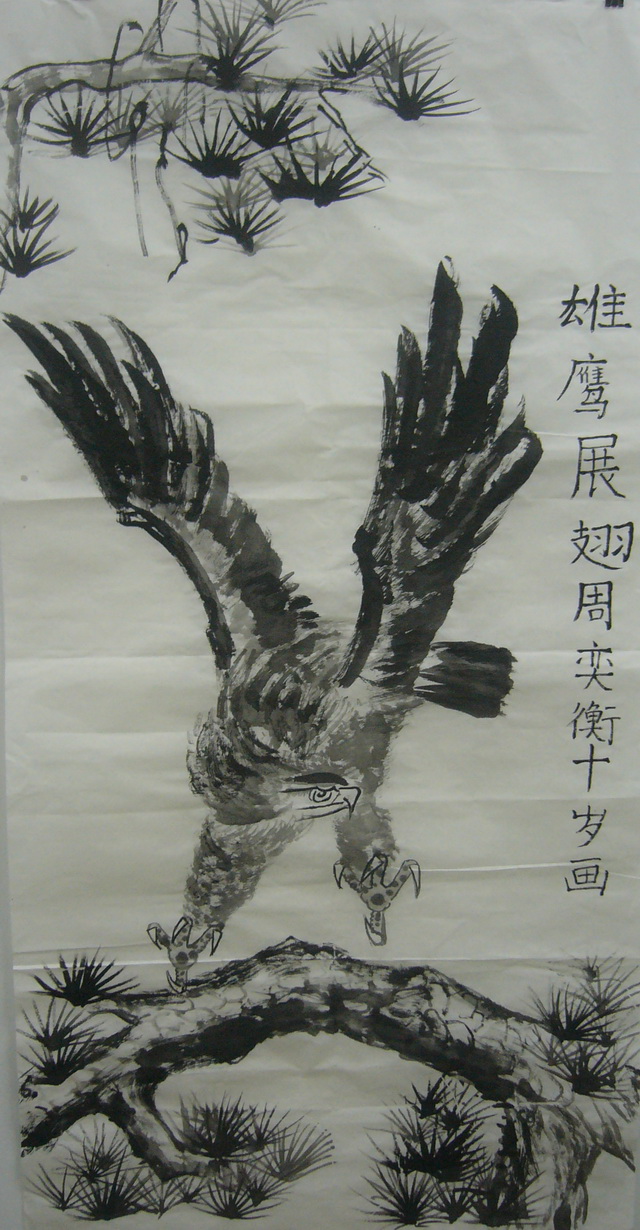 雄鹰展翅周奕衡十岁画